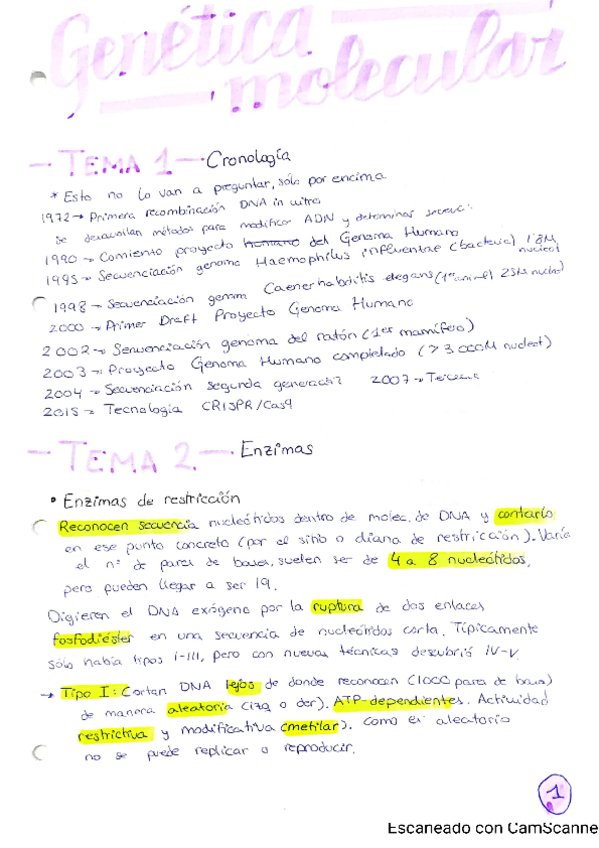 Genética
molecular
- TEMA 1 - Cronología
* Esto no lo van a preguntar, solo por encima
1972 → Primera recombinación DNA in vitro
se desarrollan métodos para modificar ADN y determinar secuenc.
1990 → Comienzo proyecto humano del Genoma Humano
1995 → Secuenciación genoma Haemophilus influenzae (bacteria) 1'8M nucleot
1998 → Secuenciación genoma Caenorhabditis elegans (1er animal) nucleot)
2000 → Primer Draft Proyecto Genoma Humano
2002 → Secuenciación genoma del ratón (1er mamífero)
2003 → Proyecto Genoma Humano completado (> 3000M nucleot)
2004 → Secuenciación segunda generación 2007 → Tercera
2015 → Tecnología CRISPR/Cas9
- TEMA 2 - Enzimas
• Enzimas de restricción
Reconocen secuencia nucleótidos dentro de molec. de DNA y cortarlo
en ese punto concreto (por el sitio o diana de restricción). Varía
el nº de pares de bases, suelen ser de 4 a 8 nucleótidos,
pero pueden llegar a ser 19.
Digieren el DNA exógeno por la ruptura de dos enlaces
fosfodiéster en una secuencia de nucleótidos corta. Típicamente
sólo había tipos I-III, pero con nuevas técnicas descubrió IV-V.
→ Tipo I: Cortan DNA lejos de donde reconocen (1000 pares de bases)
de manera aleatoria (izq o der). ATP-dependientes. Actividad
restrictiva y modificativa (metilar). como es aleatorio
no se puede replicar o reproducir.
1
Escaneado con CamScanne